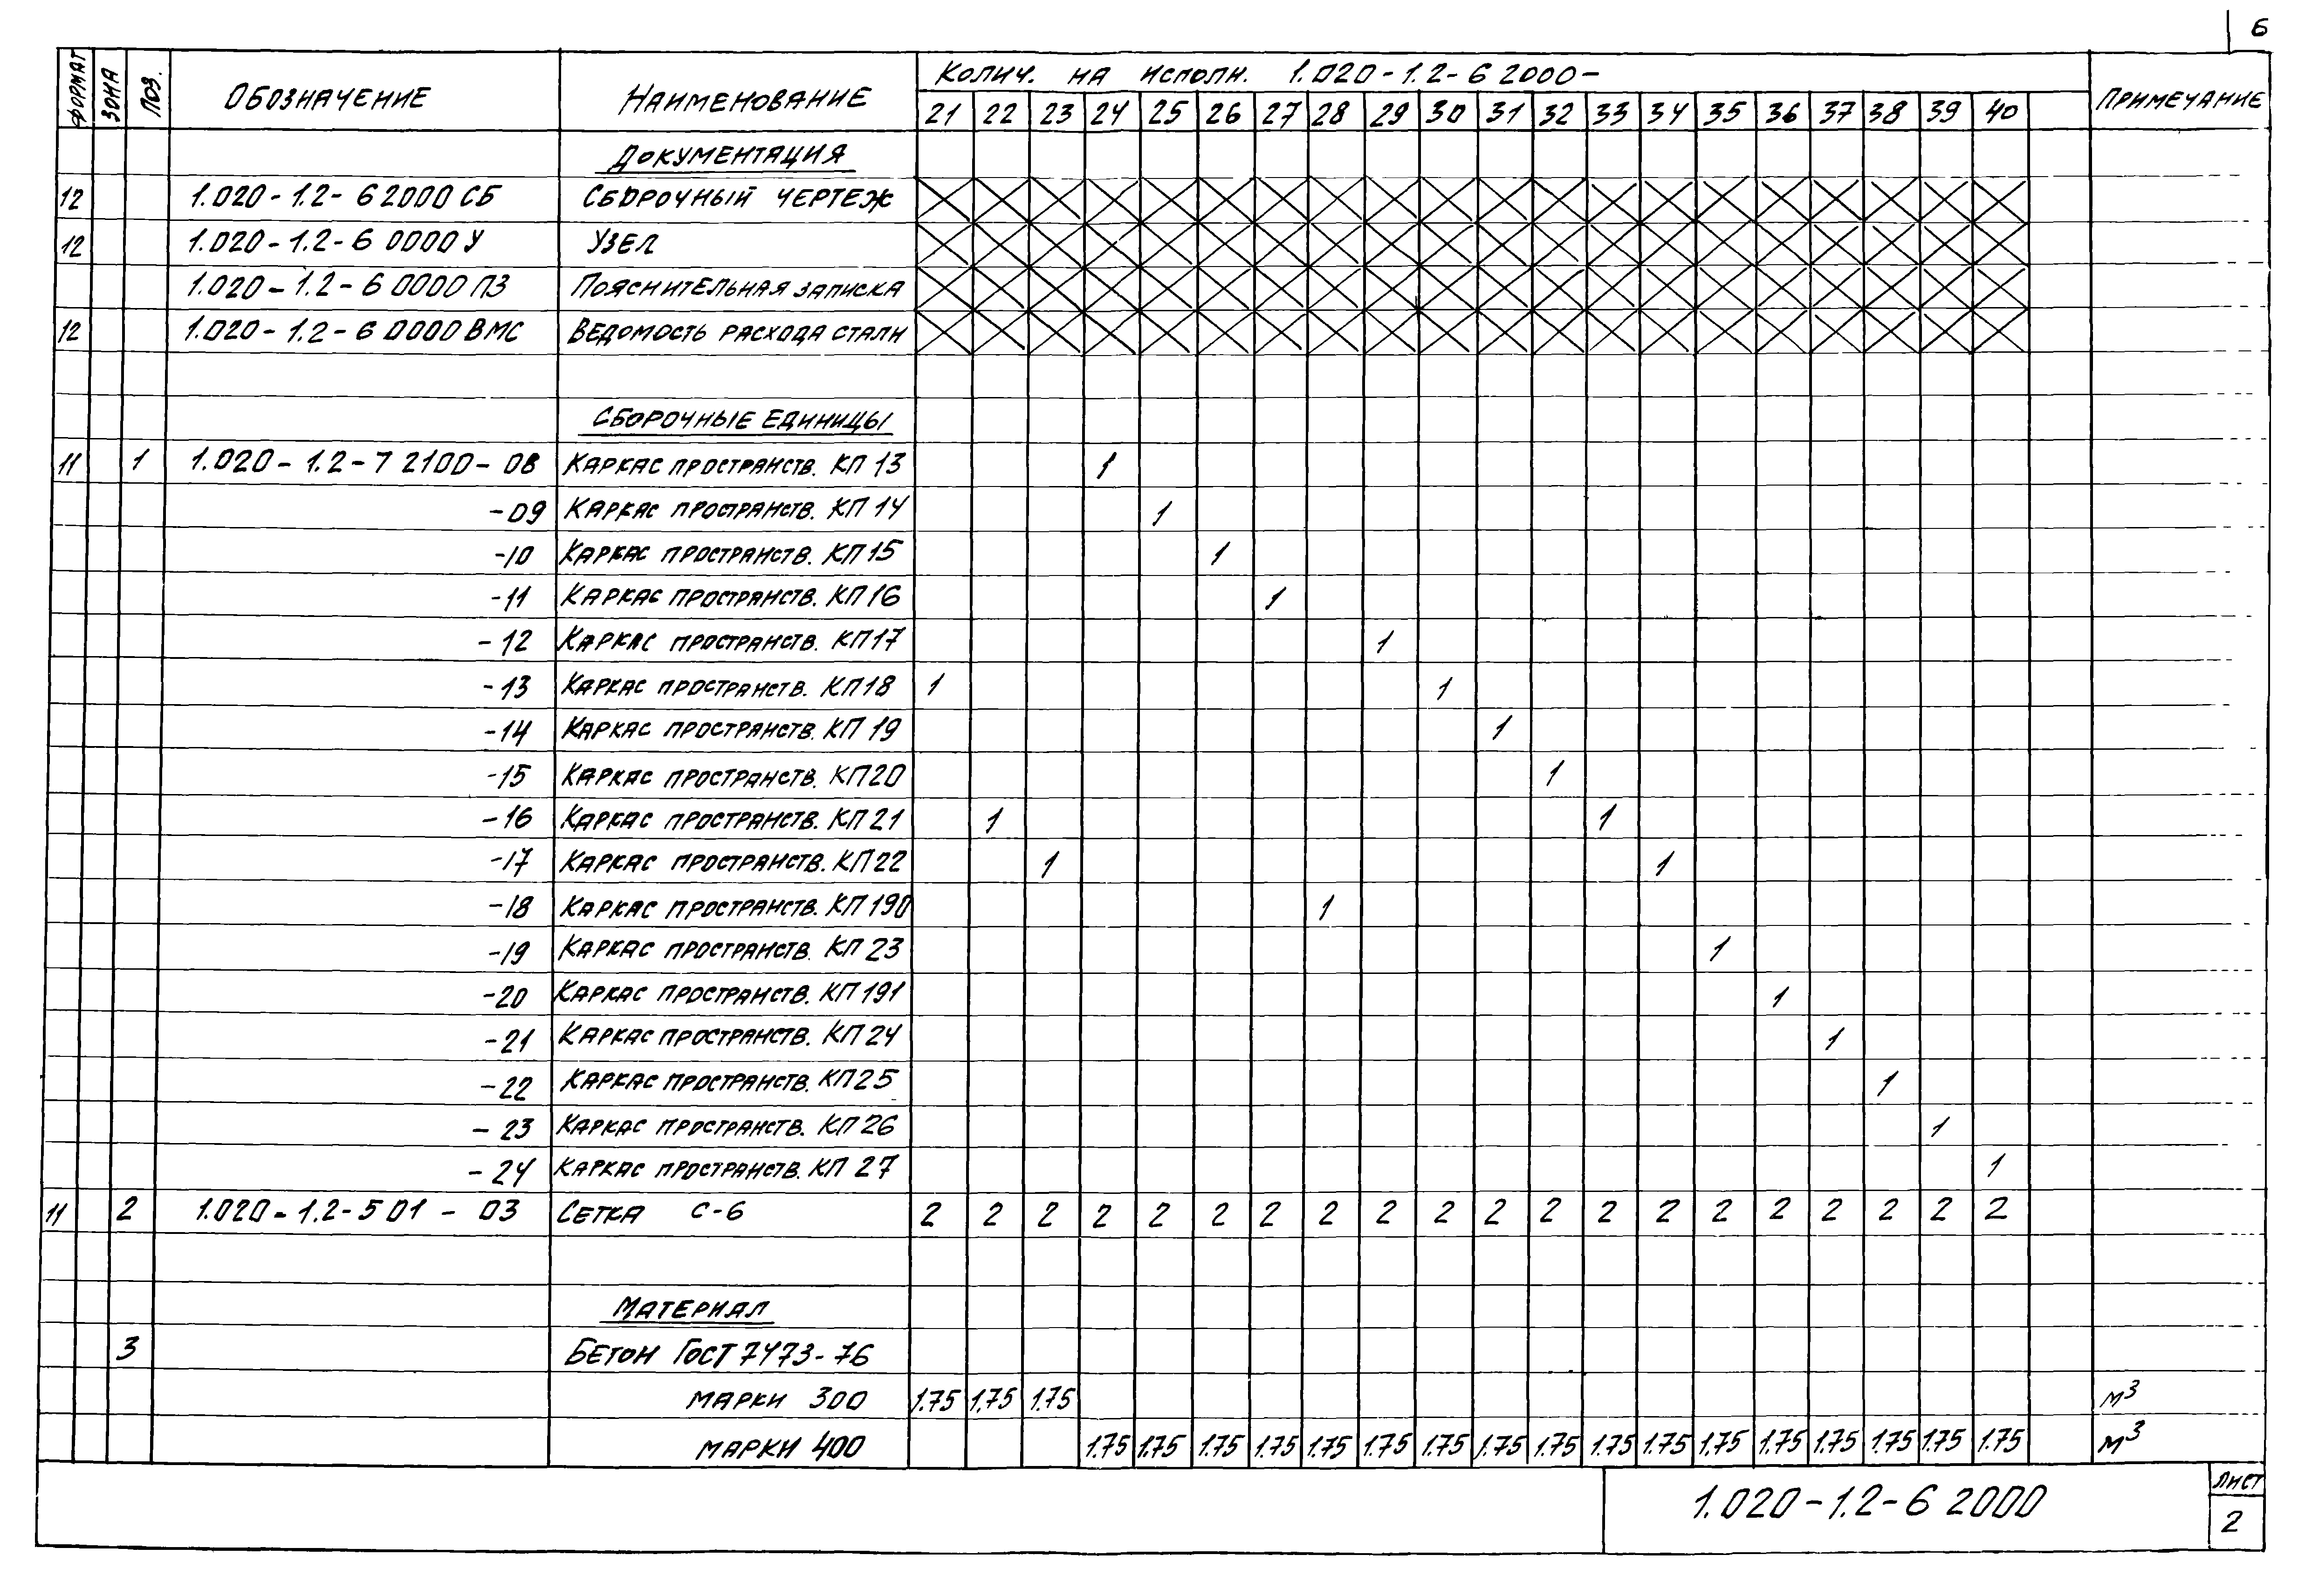 6
ФОРМАТ ЗОНА ПОЗ. ОБОЗНАЧЕНИЕ НАИМЕНОВАНИЕ КОЛИЧ. НА ИСПОЛН. 1.020-1.2-6 2000- ПРИМЕЧАНИЕ
21 22 23 24 25 26 27 28 29 30 31 32 33 34 35 36 37 38 39 40
ДОКУМЕНТАЦИЯ
12 1.020-1.2-6 2000 СБ СБОРОЧНЫЙ ЧЕРТЕЖ
12 1.020-1.2-6 0000 У УЗЕЛ
1.020-1.2-6 0000 ПЗ ПОЯСНИТЕЛЬНАЯ ЗАПИСКА
12 1.020-1.2-6 0000 ВМС ВЕДОМОСТЬ РАСХОДА СТАЛИ
СБОРОЧНЫЕ ЕДИНИЦЫ
11 1 1.020-1.2-7 2100-08 КАРКАС ПРОСТРАНСТВ. КП 13 1
-09 КАРКАС ПРОСТРАНСТВ. КП 14 1
-10 КАРКАС ПРОСТРАНСТВ. КП 15 1
-11 КАРКАС ПРОСТРАНСТВ. КП 16 1
-12 КАРКАС ПРОСТРАНСТВ. КП 17 1
-13 КАРКАС ПРОСТРАНСТВ. КП 18 1 1
-14 КАРКАС ПРОСТРАНСТВ. КП 19 1
-15 КАРКАС ПРОСТРАНСТВ. КП 20 1
-16 КАРКАС ПРОСТРАНСТВ. КП 21 1 1
-17 КАРКАС ПРОСТРАНСТВ. КП 22 1 1
-18 КАРКАС ПРОСТРАНСТВ. КП 190 1
-19 КАРКАС ПРОСТРАНСТВ. КП 23 1
-20 КАРКАС ПРОСТРАНСТВ. КП 191 1
-21 КАРКАС ПРОСТРАНСТВ. КП 24 1
-22 КАРКАС ПРОСТРАНСТВ. КП 25 1
-23 КАРКАС ПРОСТРАНСТВ. КП 26 1
-24 КАРКАС ПРОСТРАНСТВ. КП 27 1
11 2 1.020-1.2-5 01 - 03 СЕТКА С-6 2 2 2 2 2 2 2 2 2 2 2 2 2 2 2 2 2 2 2 2
МАТЕРИАЛ
3 БЕТОН ГОСТ 7473-76
МАРКИ 300 1.75 1.75 1.75 м³
МАРКИ 400 1.75 1.75 1.75 1.75 1.75 1.75 1.75 1.75 1.75 1.75 1.75 1.75 1.75 1.75 1.75 1.75 1.75 м³
1.020-1.2-6 2000
ЛИСТ
2